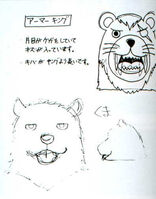 アーマー キング
・片目がケガをしていて
キズが入っています。
・キバが ヤングより長いです。